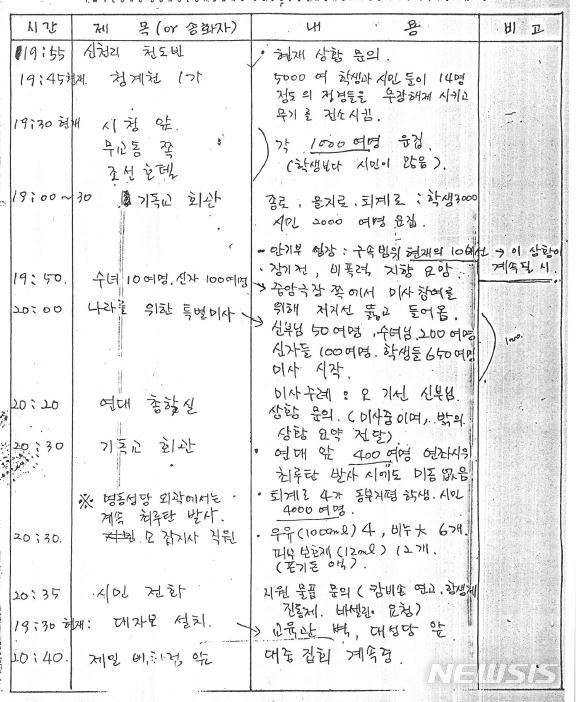 시간 제 목(or 송화자) 내 용 비 고
19:55 신천리 천도반 · 현재 상황 문의.
19:45현재 청계천 1가 5000 여 학생과 시민 들이 14명
정도의 전경들을 무장해제 시키고
무기로 전소시킴.
19:30 현재 시청 앞
무교동 쪽
조선호텔
각 1000 여명 운집
(학생보다 시민이 많음)
19:00~30 기독교 회관 종로, 을지로, 퇴계로 : 학생3000
시민 2000 여명 운집
- 안기부 입장 : 구속범위 현재의 10배선 → 이 상황이
계속될 시.
· 장기전, 비폭력, 지향 요망
19:50. 수녀 10여명, 신자 100여명 → 중앙극장 쪽에서 미사참여를
위해 저지선 뚫고 들어옴.
20:00 나라를 위한 특별미사 → 신부님 50여명, 수녀님 200여명
신자들 100여명. 학생들 650여명
미사 시작.
미사주례 : 오 기선 신부님.
20:20 연대 총학실 상황 문의. (미사중이며, 밖의
상황 요약 전달)
20:30 기독교 회관 · 연대 앞 400 여명 연좌시위
최루탄 발사 시에도 미동 없음
※ 명동성당 외곽에서는
계속 최루탄 발사.
· 퇴계로 4가 동부지평 학생·시민
4000 여명.
20:30. 모 잡지사 직원 · 우유(1000ml) 4, 비누大 6개.
피부보호제 (12ml) 12개.
(포기는 액)
20:35 시민 전화 지원 물품 문의 (캄비손 연고, 항생제
진통제. 바셀린 요청)
19:30 현재: 대자보 설치. → 교육관 벽, 대성당 앞
20:40. 제일 백화점 앞 대중 집회 계속중.
NEWSIS